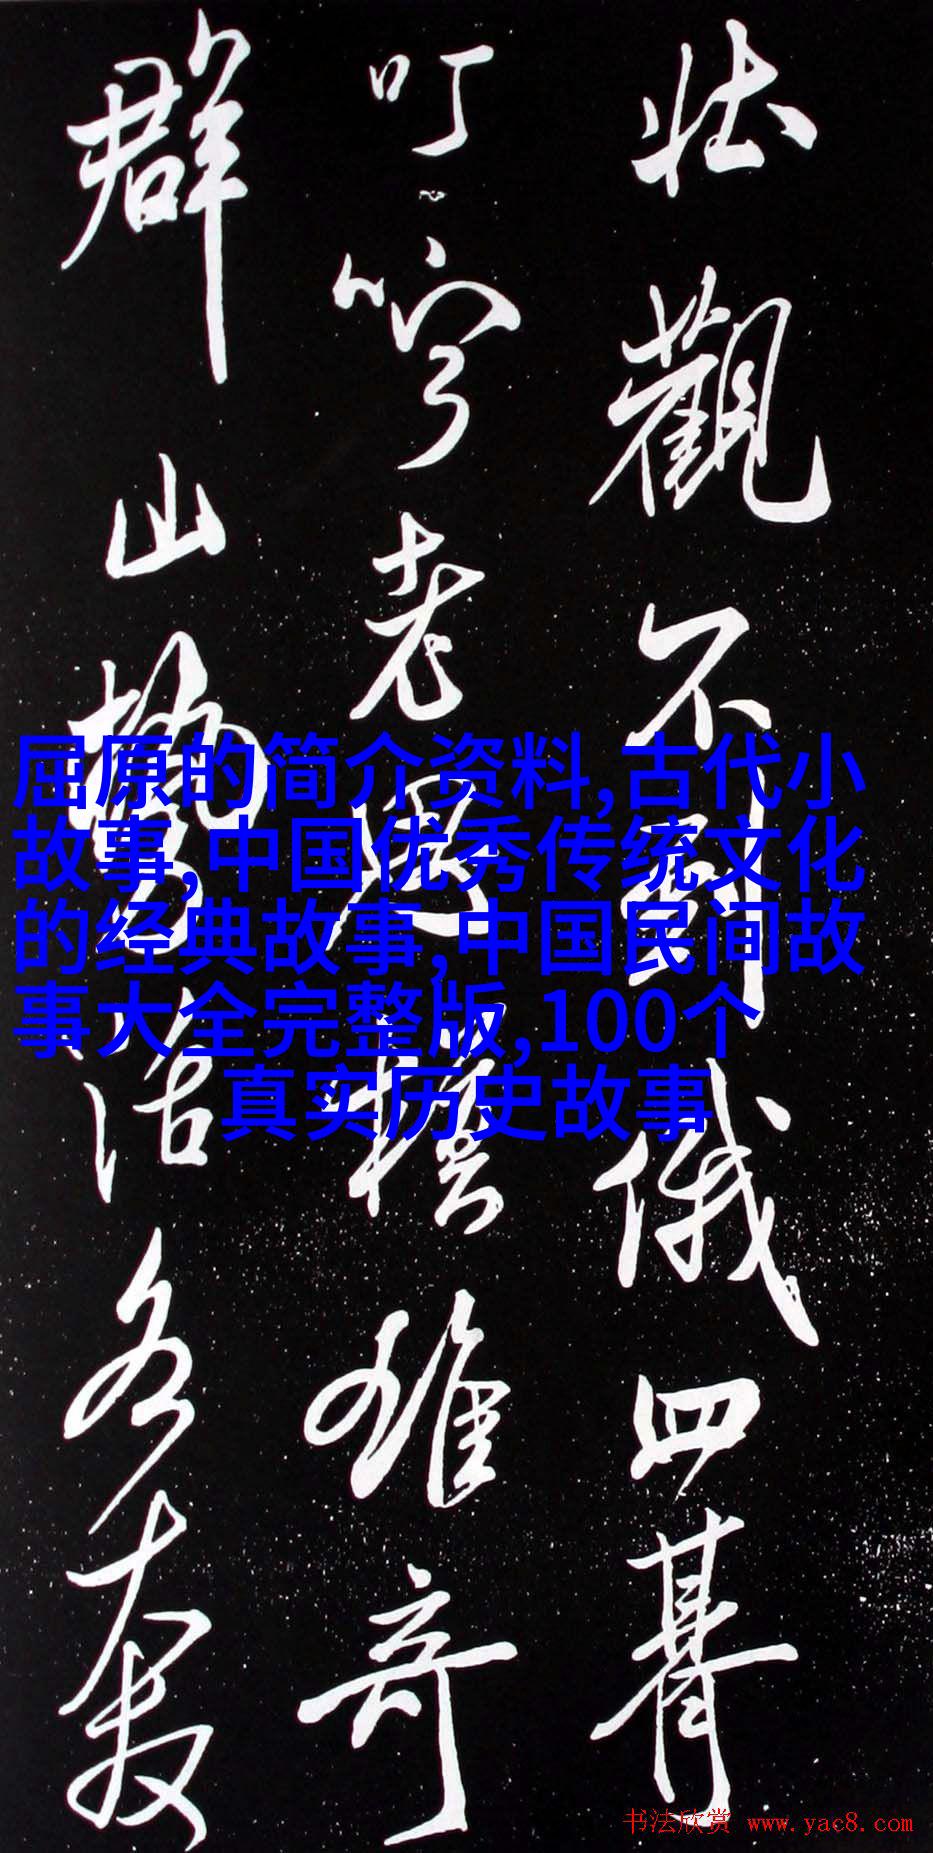 壯觀不俄四
叮嚀老雄奇
群山勢活各
屈原的简介资料,古代小
故事,中国优秀传统文化
的经典故事,中国民间故
事大全完整版,100个
真实历史故事
书法欣赏 www.yac8.com